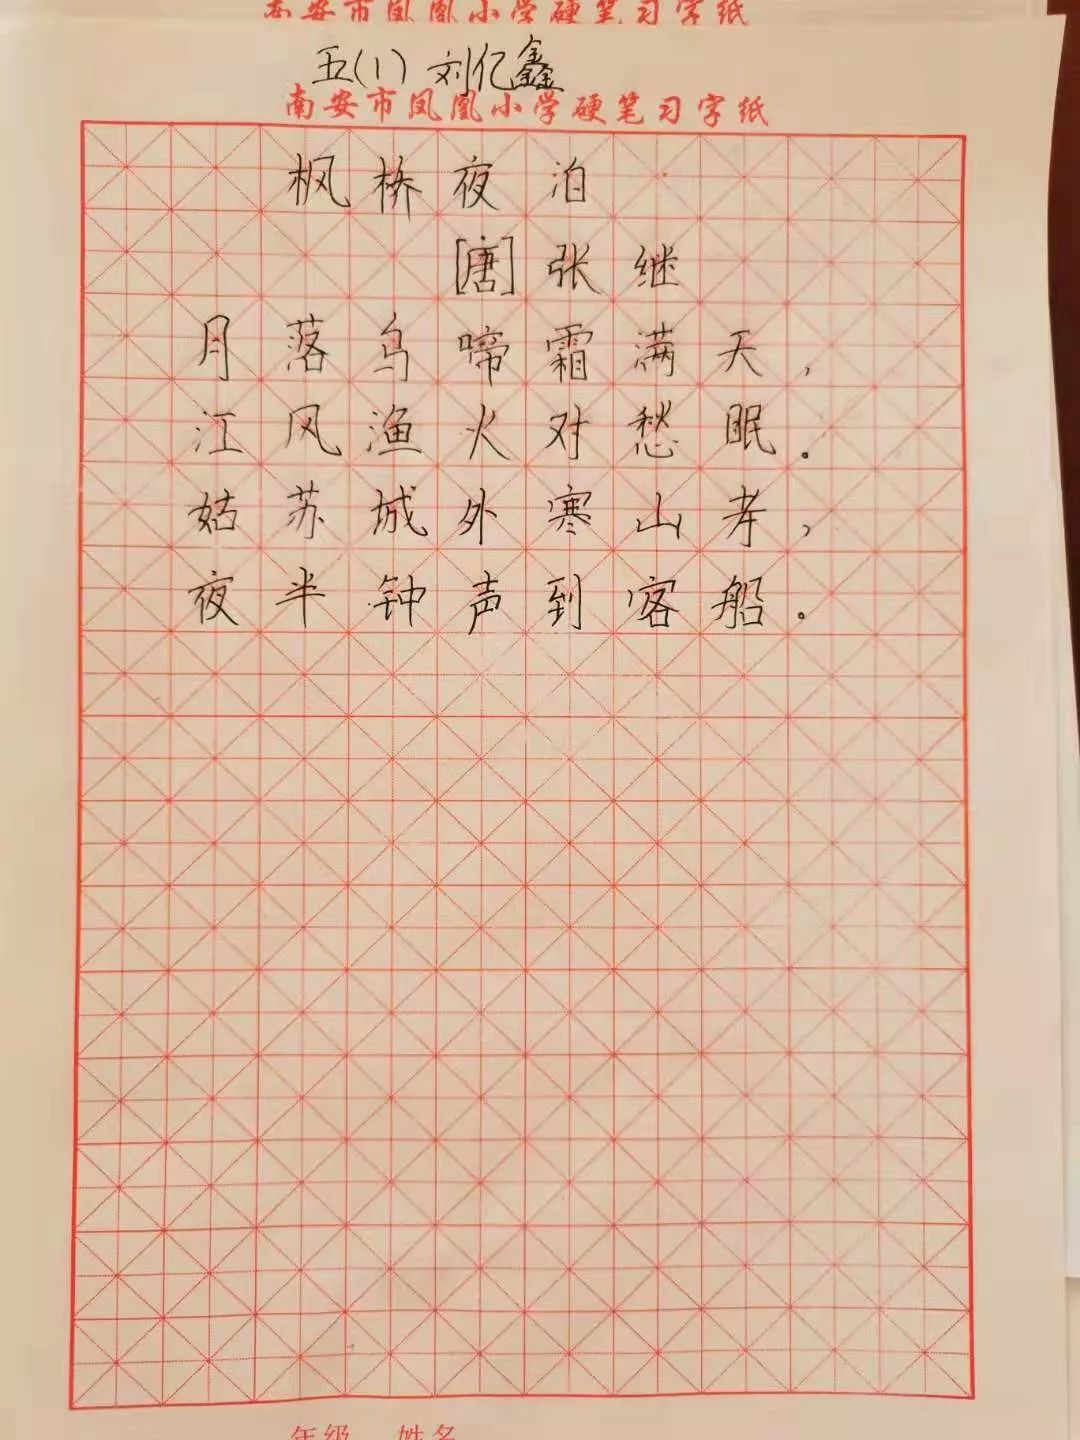 南安市凤凰小学硬笔习字纸
五(1) 刘亿鑫
南安市凤凰小学硬笔习字纸
枫桥夜泊
[唐]张继
月落乌啼霜满天，
江风渔火对愁眠。
姑苏城外寒山寺，
夜半钟声到客船。
年级 姓名